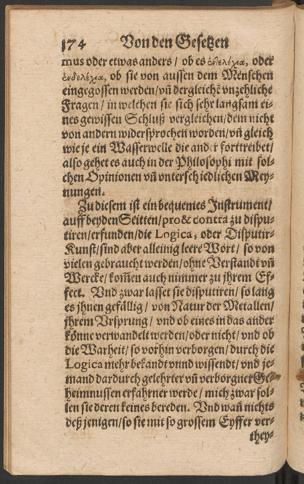 174 Von den Gesetzen
mus oder etwas anders / ob es ἐντελέχεια, oder
ἐνδελέχεια, ob sie von aussen dem Menschen
eingegossen werden / uñ dergleichẽ unzehliche
Fragen / in welchen sie sich sehr langsam ei-
nes gewissen Schluß vergleichen / dem nicht
von andern widersprochen worden / uñ gleich
wie je ein Wasserwelle die ander forttreibet /
also gehet es auch in der Philosophi mit sol-
chen Opinionen uñ unterschiedlichen Mey-
nungen.
Zu diesem ist ein bequemes Instrument /
auff beyden Seitten / pro & contra zu dispu-
tiren / erfunden / die Logica, oder Disputir-
Kunst / sind aber alleinig leere Wort / so von
vielen gebraucht werden / ohne Verstand uñ
Wercke / kom̃en auch nimmer zu jhrem Ef-
fect. Und zwar lasset sie disputiren / so lang
es jhnen gefällig / von Natur der Metallen /
jhrem Ursprung / und ob eines in das ander
köñe verwandelt werden / oder nicht / und ob
die Warheit / so vorhin verborgen / durch die
Logica mehr bekandt unnd wissendt / und je-
mand dardurch gelehrter uñ verborgner Ge-
heimnussen erfahrner werde / mich zwar sol-
len sie deren keines bereden. Und wañ nichts
deß jenigen / so sie mit so grossem Eyffer ver-
they-